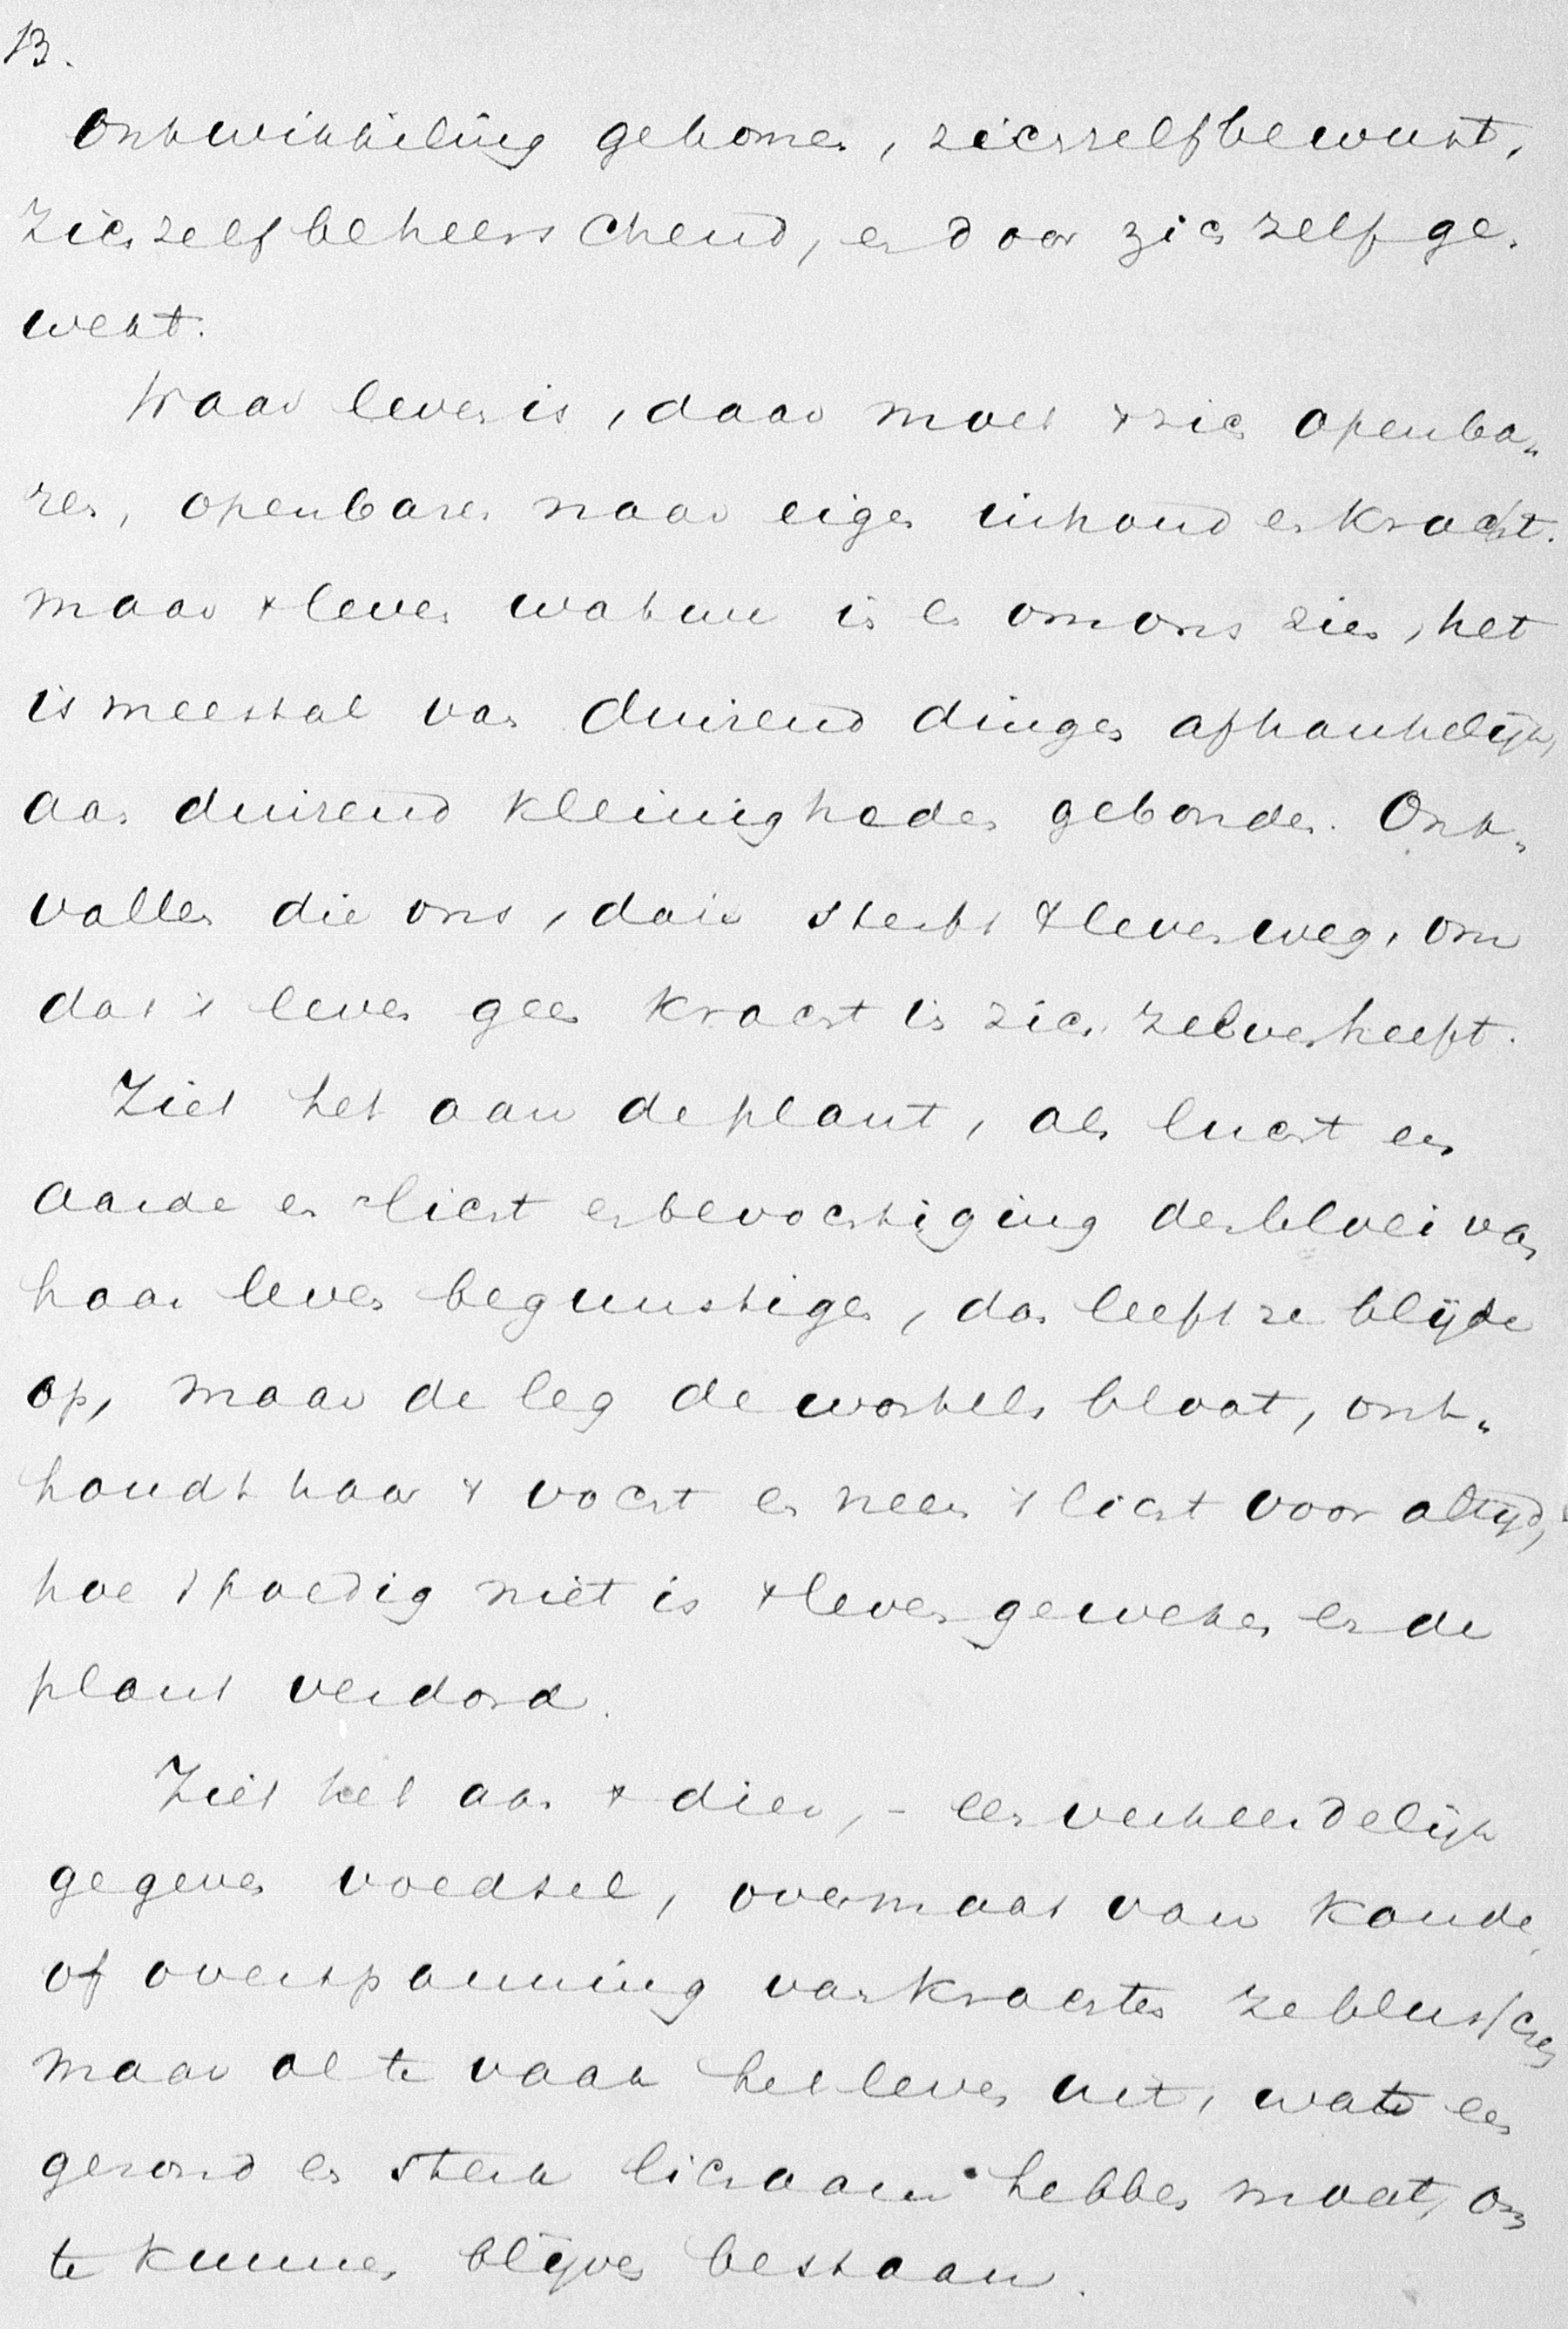 13.
Ontwikkeling gekomen, zichzelfbewust,
Zichzelfbeheerschend, en door zichzelf ge-
wekt.
Waar leven is, daar moet 't zich openba-
ren, openbaren naar eigen inhoud en kracht.
maar 't leven wat nu is en om ons zien, het
is meestal van duizend dingen afhankelijk,
aan duizend kleinigheden gebonden. Ont-
vallen die ons, dan sterft 't leven weg, om
dat 't leven geen kracht in zich zelven heeft.
Ziet het aan de plant, als lucht en
aarde en licht en bevochtiging den bloei van
haar leven begunstigen, dan leeft ze blijde
op, maar de leg de wortels bloot, ont-
houdt haar 't vocht en neem 't licht voor altijd,
hoe spoedig niet is 't leven geweken en de
plant verdord.
Ziet het aan 't dier, - een verkeerdelijk
gegeven voedsel, overmaat van koude,
of overspanning van krachten ze blusschen
maar al te vaak het leven uit, wat een
gezond en sterk lichaam hebben moet, om
te kunnen blijven bestaan.